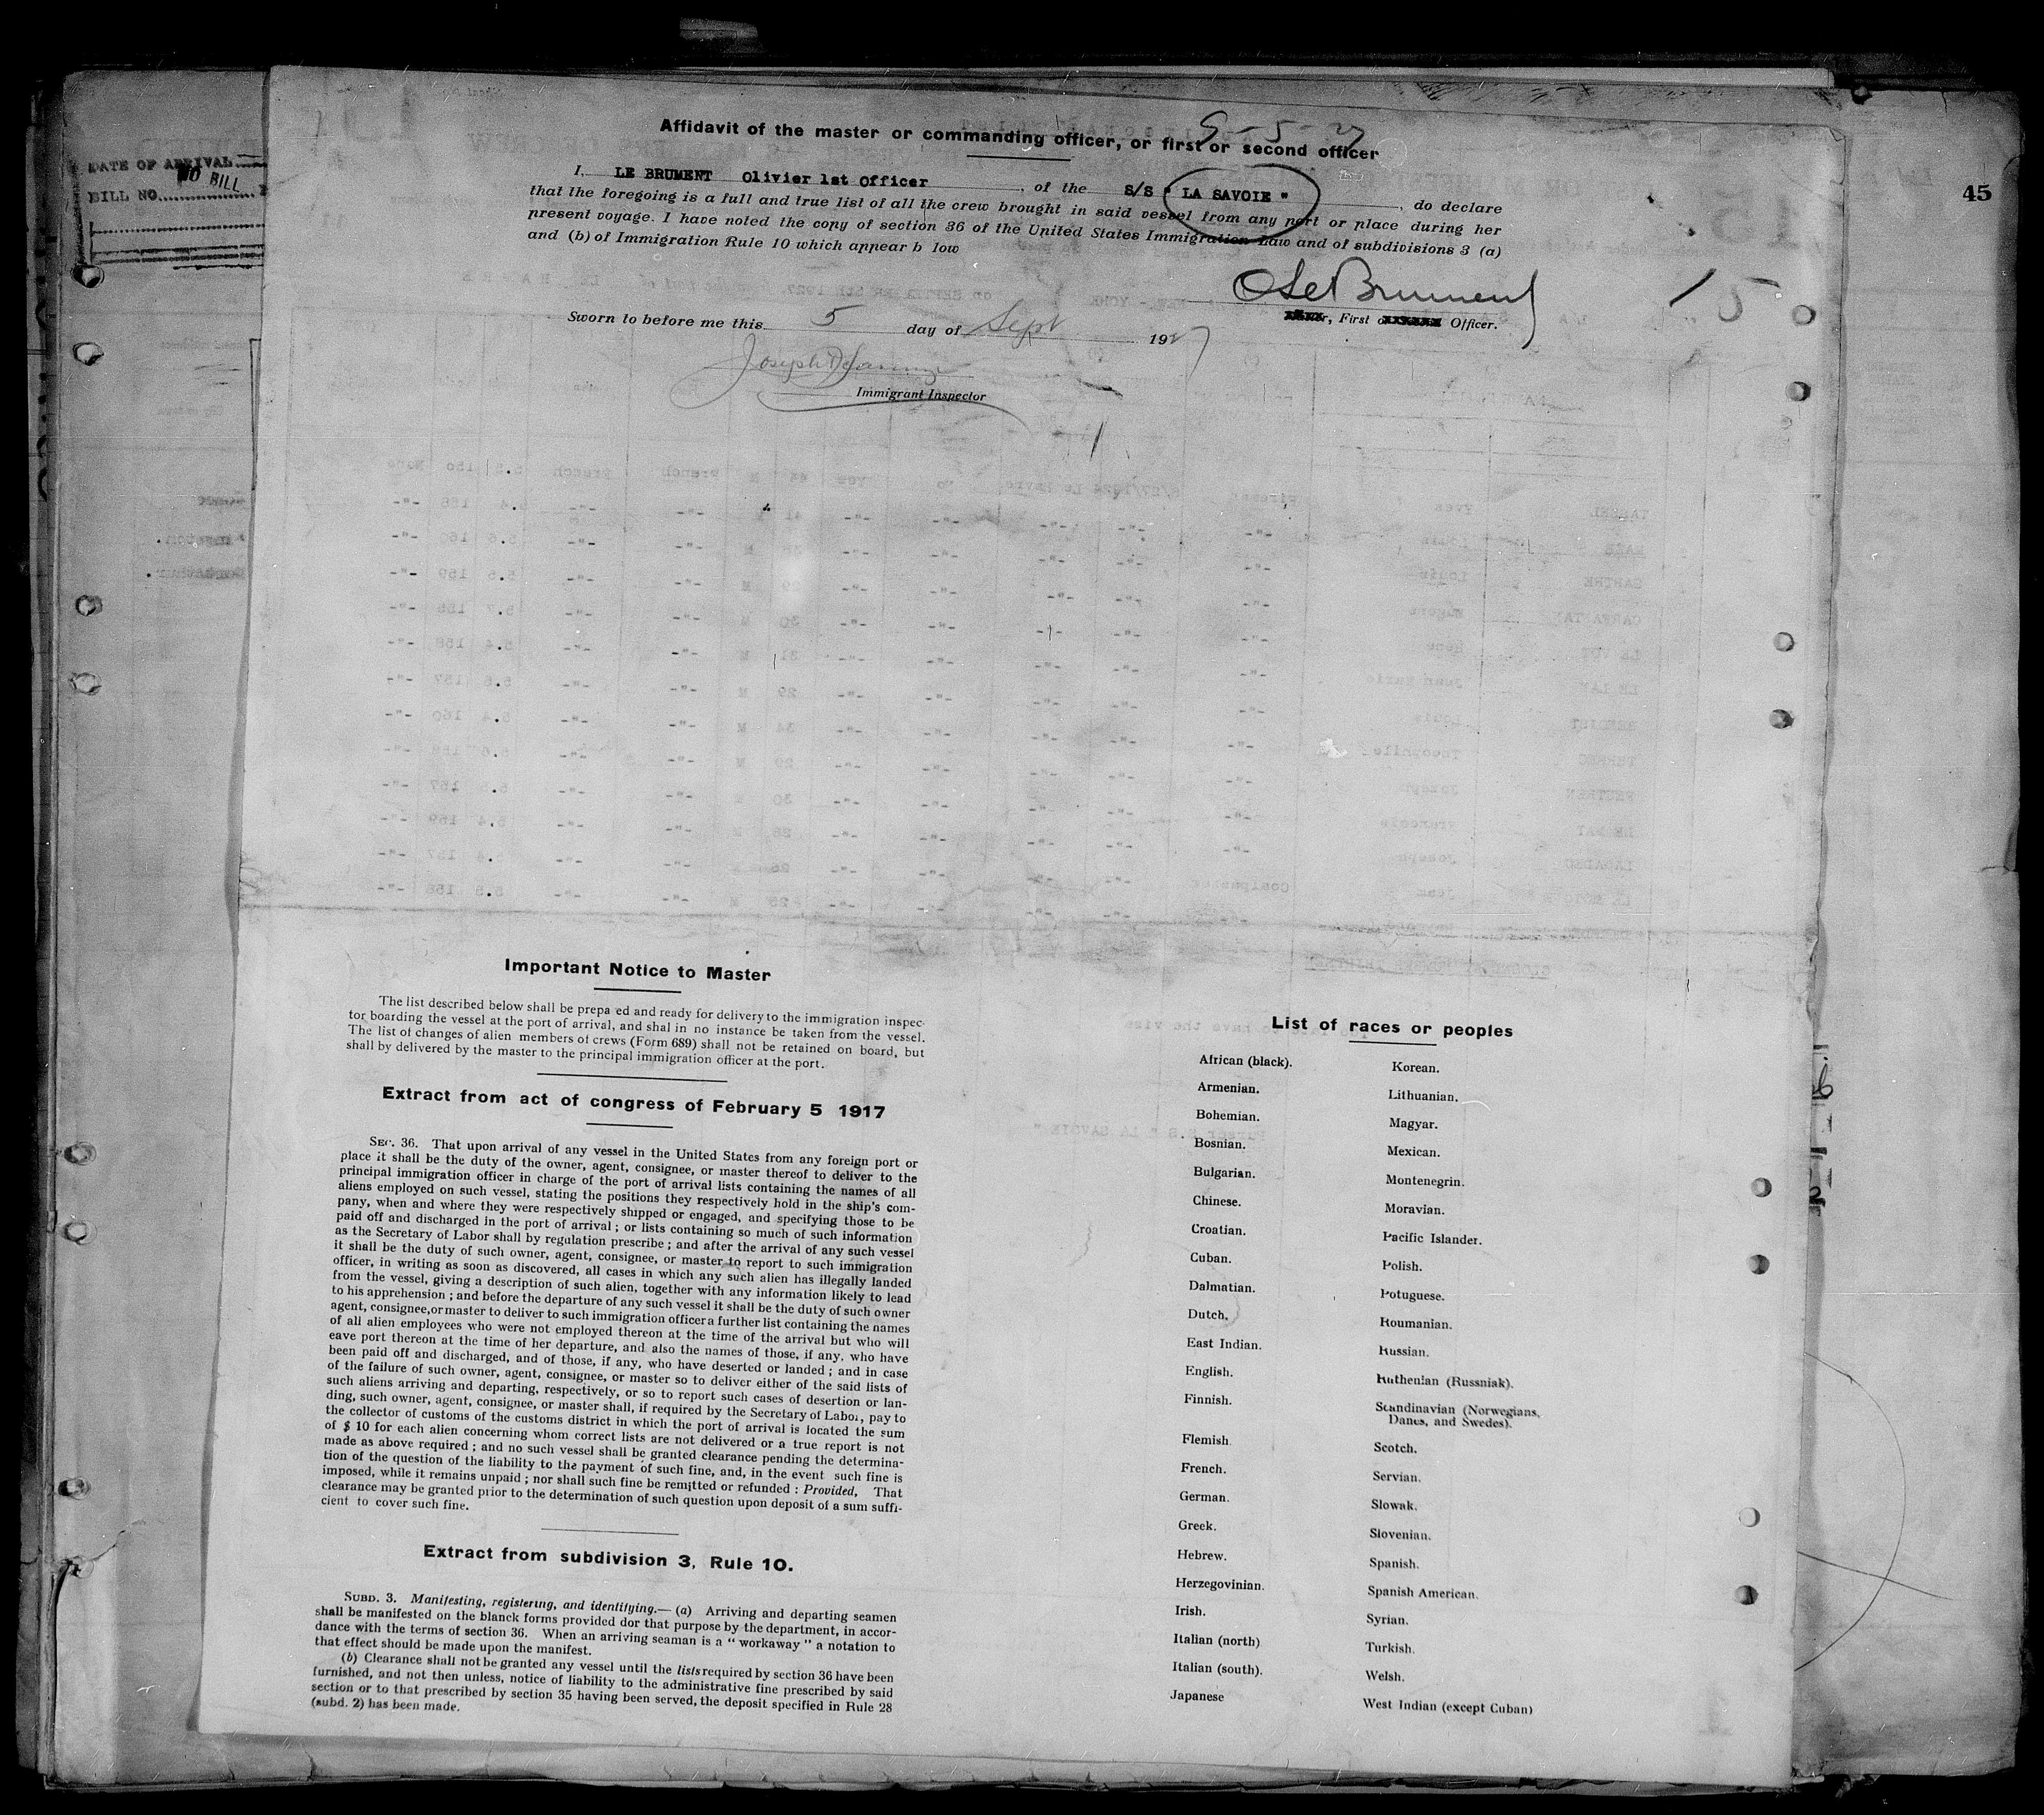 9-5-27
Affidavit of the master or commanding officer, or first or second officer
DATE OF ARRIVAL
NO BILL
BILL NO.
45
I, LE BRUMENT Olivier 1st Officer, of the S/S " LA SAVOIE ", do declare
that the foregoing is a full and true list of all the crew brought in said vessel from any port or place during her
present voyage. I have noted the copy of section 36 of the United States Immigration Law and of subdivisions 3 (a)
and (b) of Immigration Rule 10 which appear b low
O Le Brument
15
First Officer.
Sworn to before me this 5 day of Sept 1927
Joseph
Immigrant Inspector
Important Notice to Master
The list described below shall be prepa ed and ready for delivery to the immigration inspec-
tor boarding the vessel at the port of arrival, and shal in no instance be taken from the vessel.
The list of changes of alien members of crews (Form 689) shall not be retained on board, but
shall by delivered by the master to the principal immigration officer at the port.
Extract from act of congress of February 5 1917
SEC. 36. That upon arrival of any vessel in the United States from any foreign port or
place it shall be the duty of the owner, agent, consignee, or master thereof to deliver to the
principal immigration officer in charge of the port of arrival lists containing the names of all
aliens employed on such vessel, stating the positions they respectively hold in the ship's com-
pany, when and where they were respectively shipped or engaged, and specifying those to be
paid off and discharged in the port of arrival ; or lists containing so much of such information
as the Secretary of Labor shall by regulation prescribe ; and after the arrival of any such vessel
it shall be the duty of such owner, agent, consignee, or master to report to such immigration
officer, in writing as soon as discovered, all cases in which any such alien has illegally landed
from the vessel, giving a description of such alien, together with any information likely to lead
to his apprehension ; and before the departure of any such vessel it shall be the duty of such owner
agent, consignee, or master to deliver to such immigration officer a further list containing the names
of all alien employees who were not employed thereon at the time of the arrival but who will
eave port thereon at the time of her departure, and also the names of those, if any, who have
been paid off and discharged, and of those, if any, who have deserted or landed ; and in case
of the failure of such owner, agent, consignee, or master so to deliver either of the said lists of
such aliens arriving and departing, respectively, or so to report such cases of desertion or lan-
ding, such owner, agent, consignee, or master shall, if required by the Secretary of Labor, pay to
the collector of customs of the customs district in which the port of arrival is located the sum
of $ 10 for each alien concerning whom correct lists are not delivered or a true report is not
made as above required ; and no such vessel shall be granted clearance pending the determina-
tion of the question of the liability to the payment of such fine, and, in the event such fine is
imposed, while it remains unpaid ; nor shall such fine be remitted or refunded : Provided, That
clearance may be granted prior to the determination of such question upon deposit of a sum suffi-
cient to cover such fine.
Extract from subdivision 3, Rule 10.
SUBD. 3. Manifesting, registering, and identifying.— (a) Arriving and departing seamen
shall be manifested on the blanck forms provided dor that purpose by the department, in accor-
dance with the terms of section 36. When an arriving seaman is a " workaway " a notation to
that effect should be made upon the manifest.
(b) Clearance shall not be granted any vessel until the lists required by section 36 have been
furnished, and not then unless, notice of liability to the administrative fine prescribed by said
section or to that prescribed by section 35 having been served, the deposit specified in Rule 28
(subd. 2) has been made.
List of races or peoples
African (black).
Armenian.
Bohemian.
Bosnian.
Bulgarian.
Chinese.
Croatian.
Cuban.
Dalmatian.
Dutch.
East Indian.
English.
Finnish.
Flemish
French.
German.
Greek.
Hebrew.
Herzegovinian.
Irish.
Italian (north)
Italian (south).
Japanese
Korean.
Lithuanian.
Magyar.
Mexican.
Montenegrin.
Moravian.
Pacific Islander.
Polish.
Potuguese.
Roumanian.
Russian.
Ruthenian (Russniak).
Scandinavian (Norwegians,
Danes, and Swedes).
Scotch.
Servian.
Slowak.
Slovenian.
Spanish.
Spanish American.
Syrian.
Turkish.
Welsh.
West Indian (except Cuban)